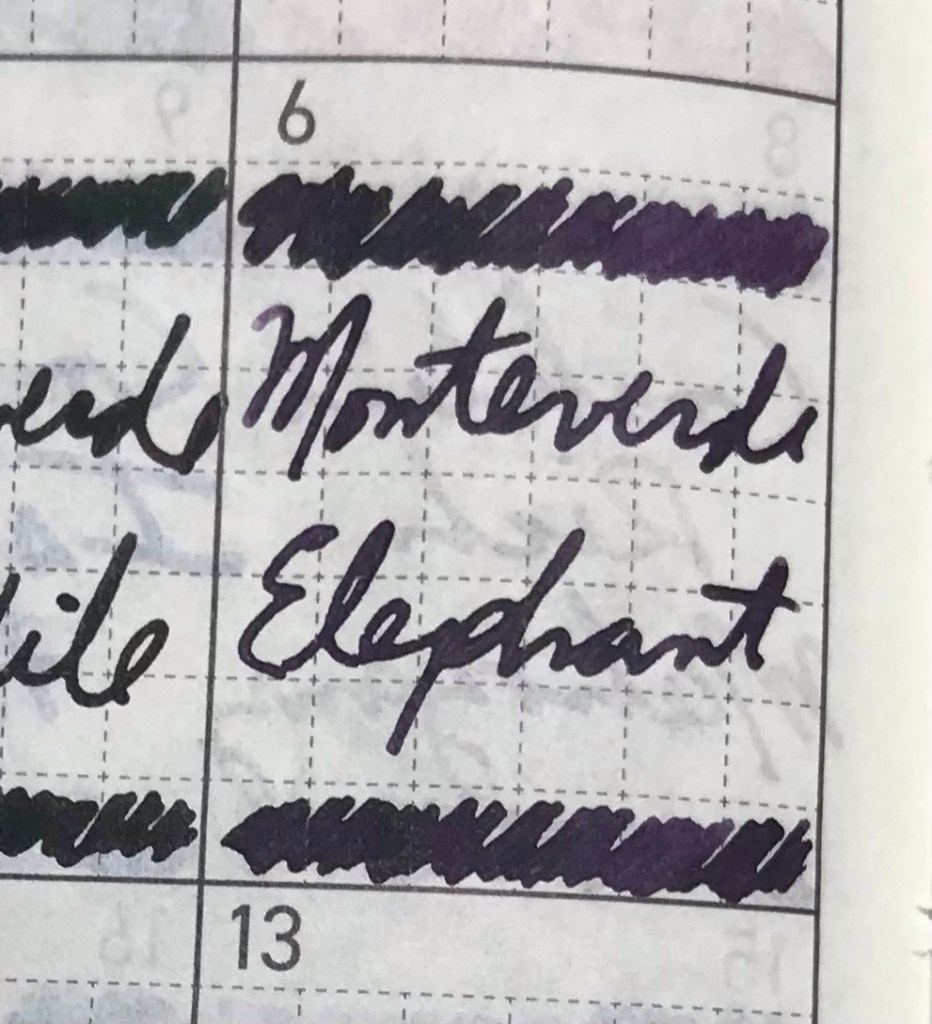 6
verde
Monteverde
Elephant
13